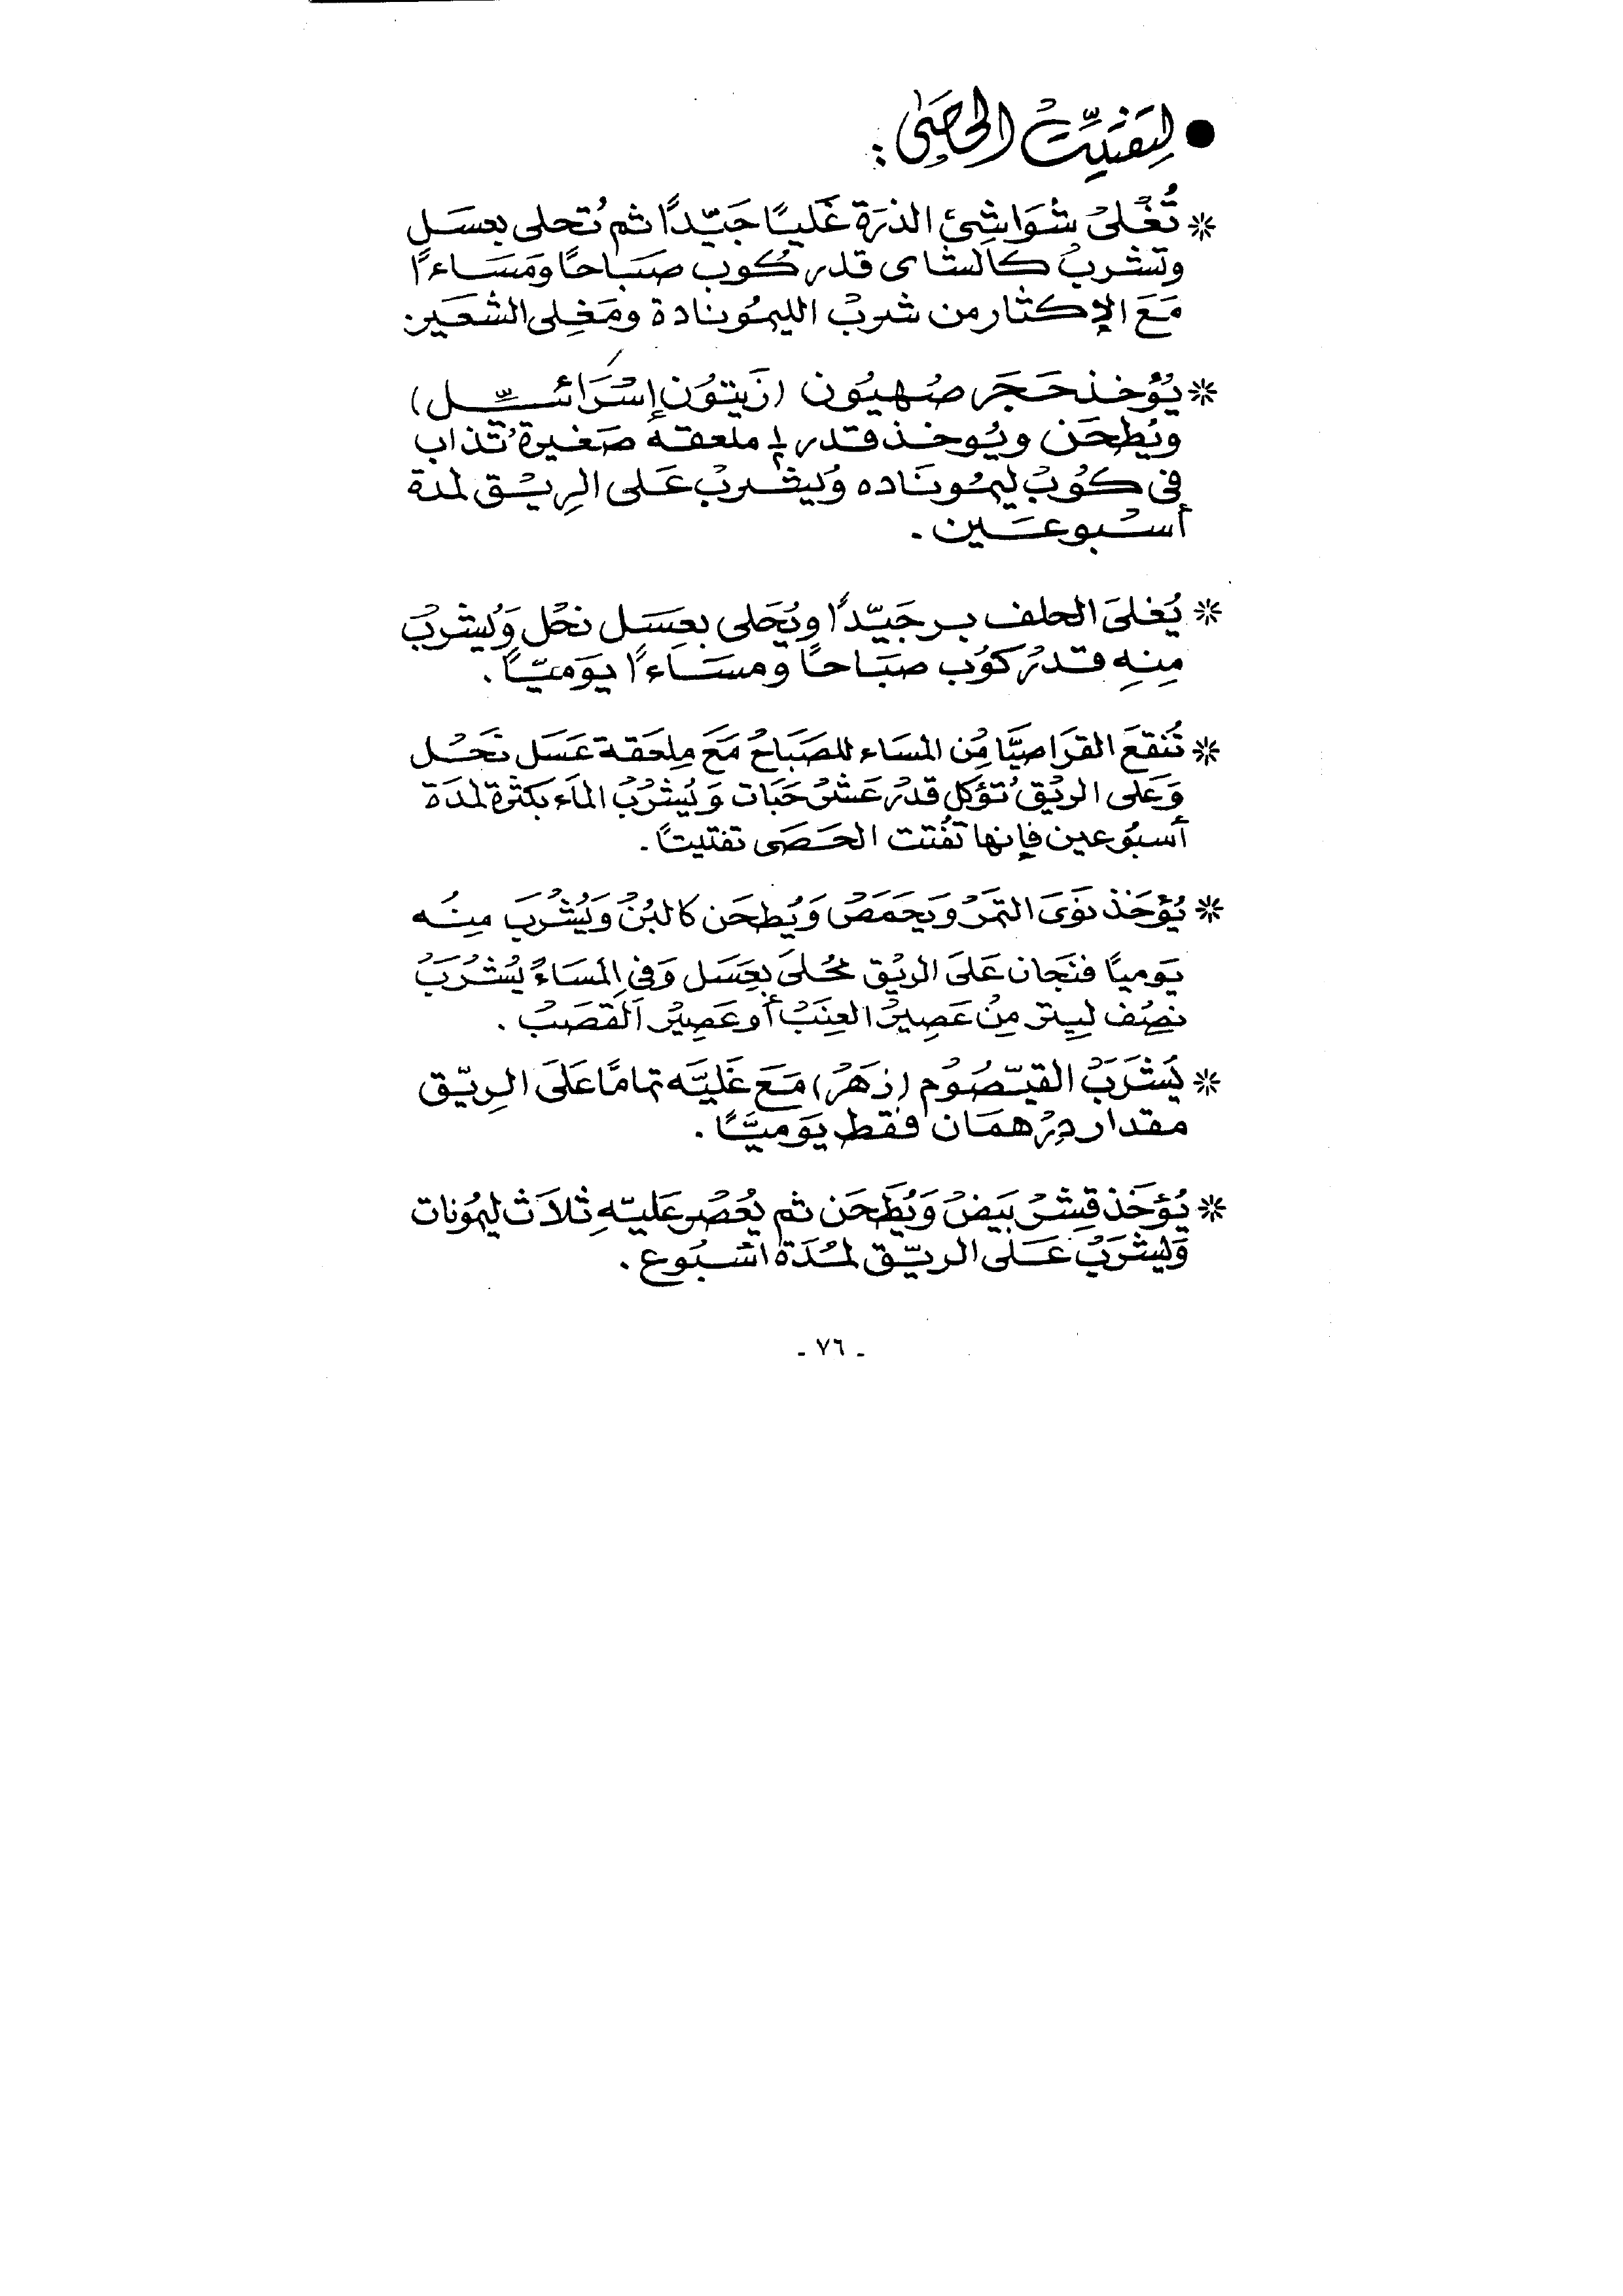 ● لِتَفتيِّتْ الحصَىٰ :
* تُغْلىْ شوَاشِئ الذرَة غَليًا جَيّدًا ثم تُحلى بعسَل
وتشربْ كالشاى قدر كُوب صَبَاحًا ومَسَاءًا
مَعَ الإكثار من شربْ الليمُونادة ومَغلِى الشعَير.
* يُؤخذ حَجَر صُهيُون (زَيتوُن إسْرَائيّل)
ويُطحَن ويُوخذ قدر ½ ملعقة صَغيرة تُذاب
فى كوُبْ ليمُونَاده وُيشربْ عَلى الرِيْق لمدة
أسْبوعَين .
* يُغلىَ الحلف بر جَيّدًا ويُحَلى بعِسَل نحْل وَيُشربْ
مِنهِ قدرْ كوُب صبَاحًا ومسَاءًا يوَميّاً .
* تُنقعَ القرَاصيَّا مِْن المسَاء للصَبَاحْ مَعَ مِلعَقة عَسَل نَحْل
وَعَلى الريْق تُؤكل قدرْ عَشرْ حَبَات وَيُشْربْ الماَء بكثرة لمدَة
أسبُوعين فإنها تفُتت الحَصَى تفتيتًا .
* يُؤخَذ نوَىَ التمَرْ ويَحمَصْ وَيُطحَن كالبُنْ وَيُشْرَبَ مِنُه
يَوميًا فنَجان عَلىَ الريْق محُلىَ بعِسَل وَفى المسَاءْ يُشْرَبْ
نصِْف ليِتر مِنْ عَصِيرْ العِنَبْ أو عَصِيرْ القصَبْ .
* يُشْرَبْ القيّصُوُم (زهَرْ) مَعَ غَليَّه تمامًا عَلىَ الرِيّق
مقدار دِرْهمَان فقط يوَميًّا .
* يُؤخَذ قِشرْ بَيضْ وَيُطَحَن ثم يعُصْر عَليّهِ ثلاَث ليمُونات
وَيشرَبْ عَلى الريّق لمُدَة اسْبُوع .
- ٧٦ -